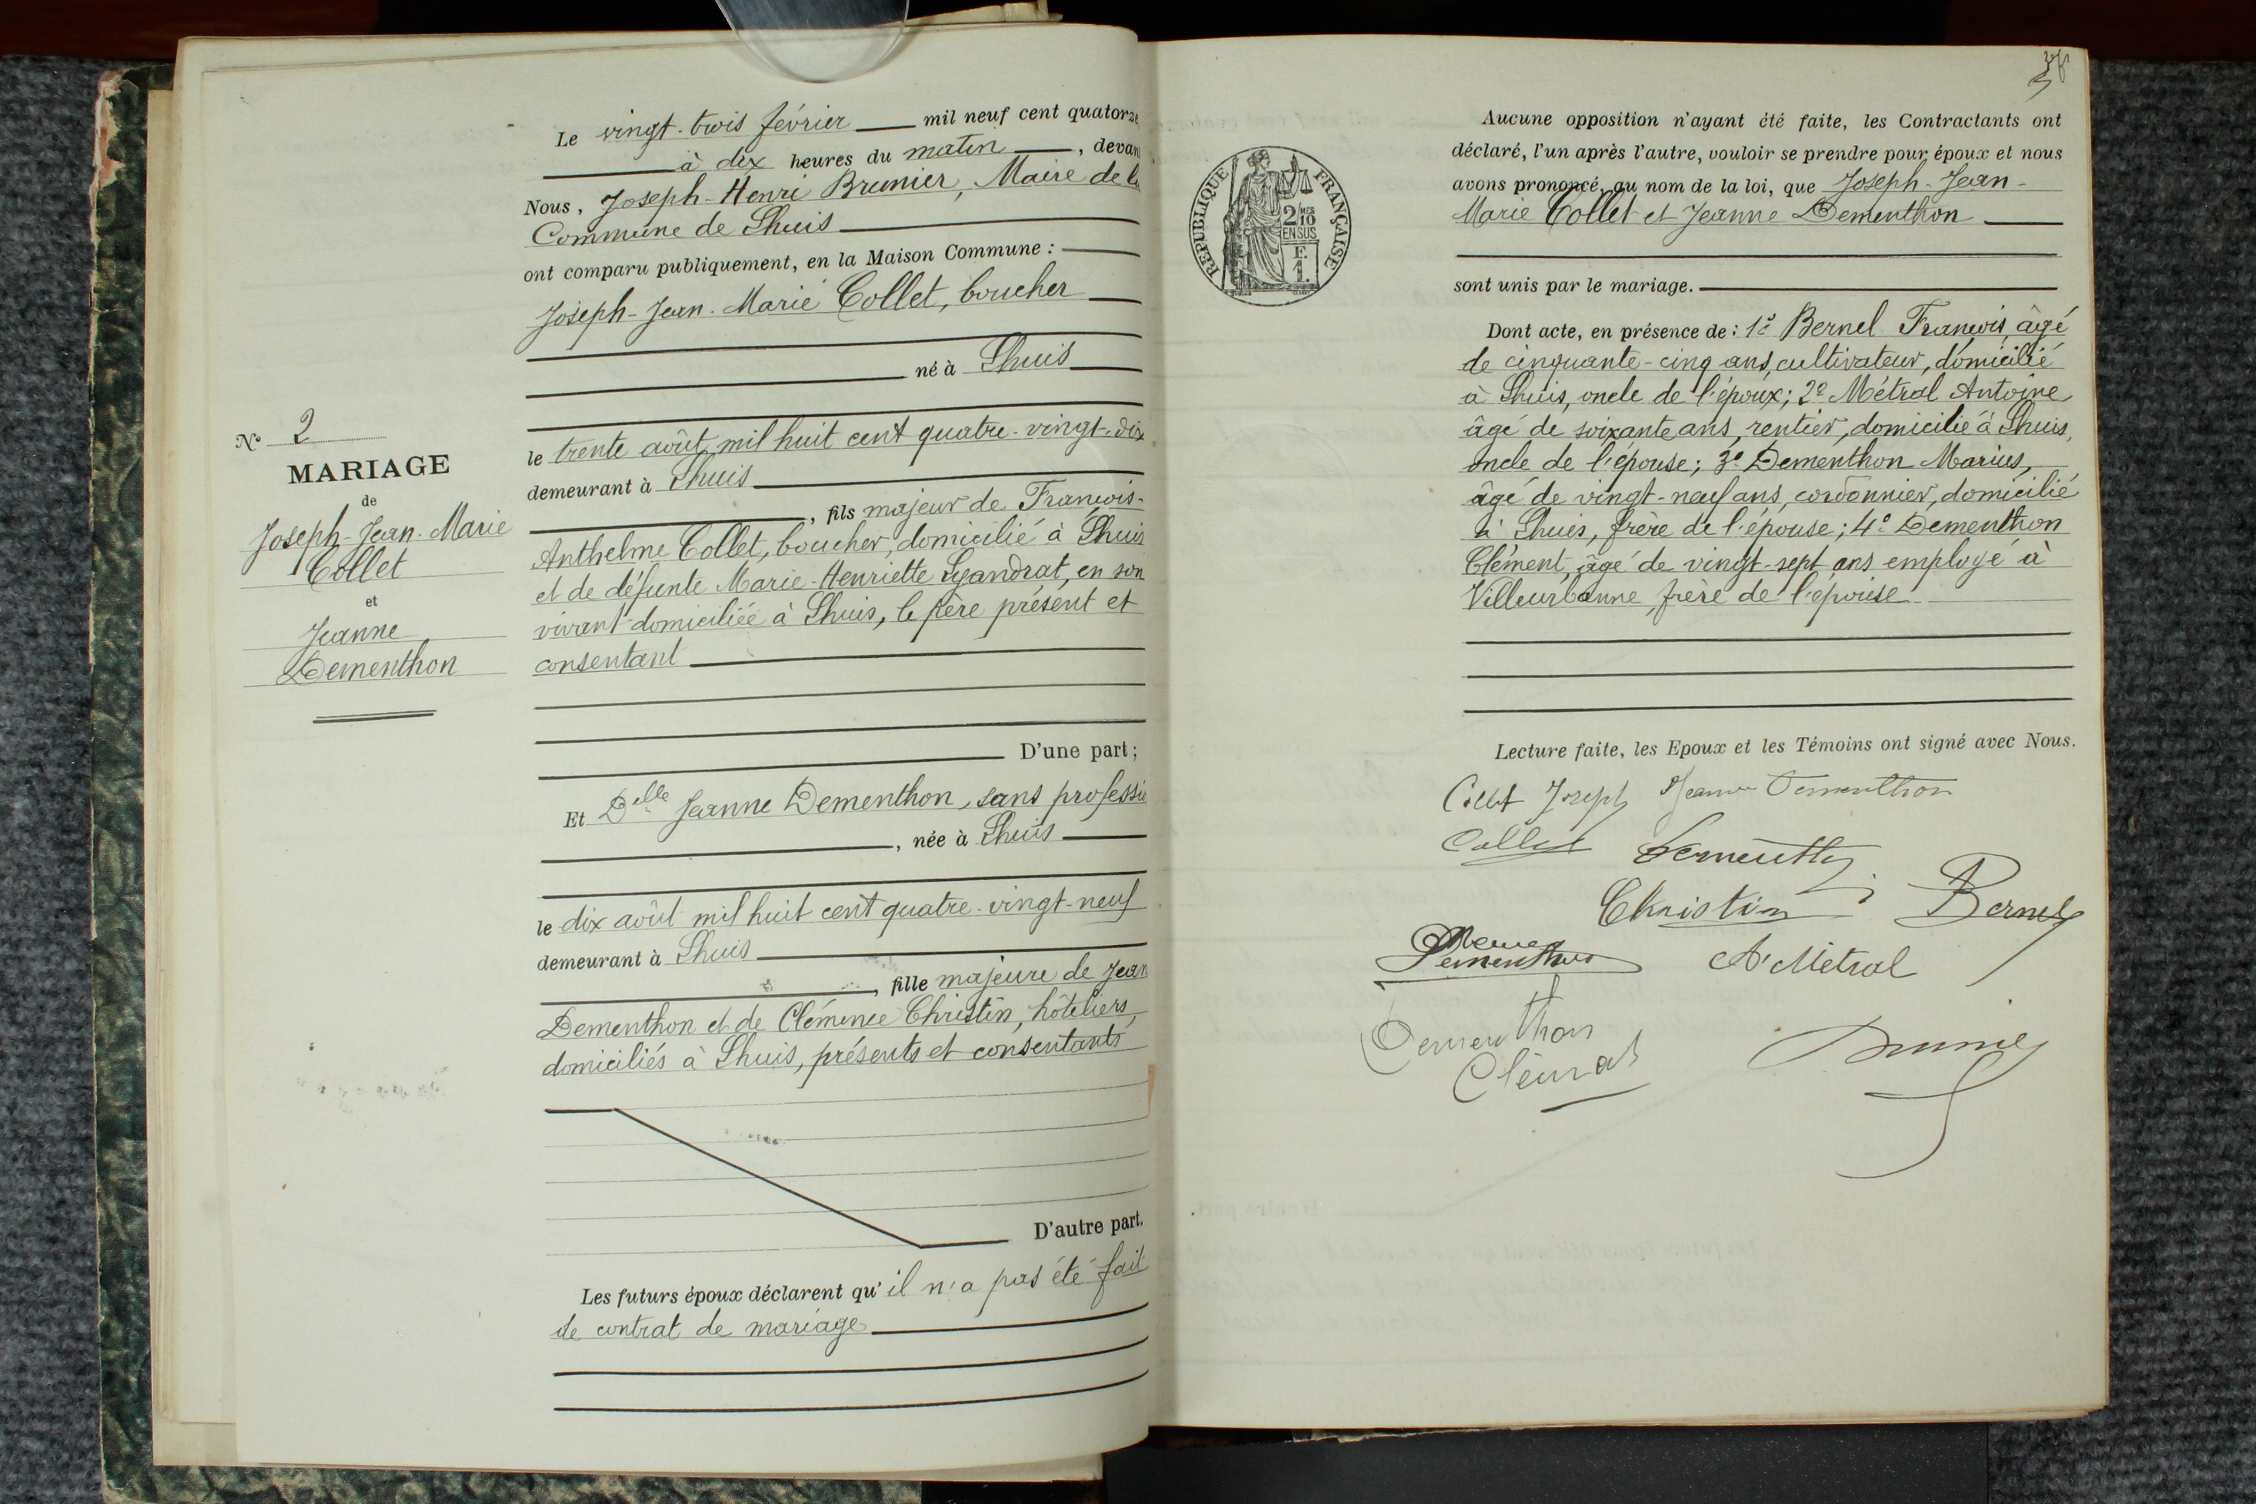 N° 2
MARIAGE
de
Joseph-Jean-Marie
Collet
et
Jeanne
Dementhon
Le vingt-trois février mil neuf cent quatorze
à dix heures du matin, devan
Nous, Joseph-Henri Brunier, Maire de la
Commune de Lhuis
ont comparu publiquement, en la Maison Commune :
Joseph-Jean-Marie Collet, boucher
né à Lhuis
le trente août mil huit cent quatre-vingt-dix
demeurant à Lhuis
, fils majeur de François-
Anthelme Collet, boucher, domicilié à Lhuis
et de défunte Marie-Henriette Lyandrat, en son
vivant domiciliée à Lhuis, le père présent et
consentant
D'une part ;
Et Delle Jeanne Dementhon, sans professio
, née à Lhuis
le dix août mil huit cent quatre-vingt-neuf
demeurant à Lhuis
, fille majeure de Jean
Dementhon et de Clémence Christin, hôteliers,
domiciliés à Lhuis, présents et consentants
D'autre part.
Les futurs époux déclarent qu'il n'a pas été fait
de contrat de mariage
RÉPUBLIQUE FRANÇAISE
2/10 MES
EN SUS
F.
1.
Aucune opposition n'ayant été faite, les Contractants ont
déclaré, l'un après l'autre, vouloir se prendre pour époux et nous
avons prononcé, au nom de la loi, que Joseph-Jean-
Marie Collet et Jeanne Dementhon
sont unis par le mariage.
Dont acte, en présence de : 1° Bernel François, âgé
de cinquante-cinq ans, cultivateur, domicilié
à Lhuis, oncle de l'époux ; 2° Métral Antoine
âgé de soixante ans, rentier, domicilié à Lhuis,
oncle de l'épouse ; 3° Dementhon Marius,
âgé de vingt-neuf ans, cordonnier, domicilié
à Lhuis, frère de l'épouse ; 4° Dementhon
Clément, âgé de vingt-sept ans employé à
Villeurbanne, frère de l'épouse
Lecture faite, les Epoux et les Témoins ont signé avec Nous.
Collet Joseph Jeanne Dementhon
Collet Dementhon
Christin Bernel
Dementhon A. Métral
Dementhon
Clément Brunier